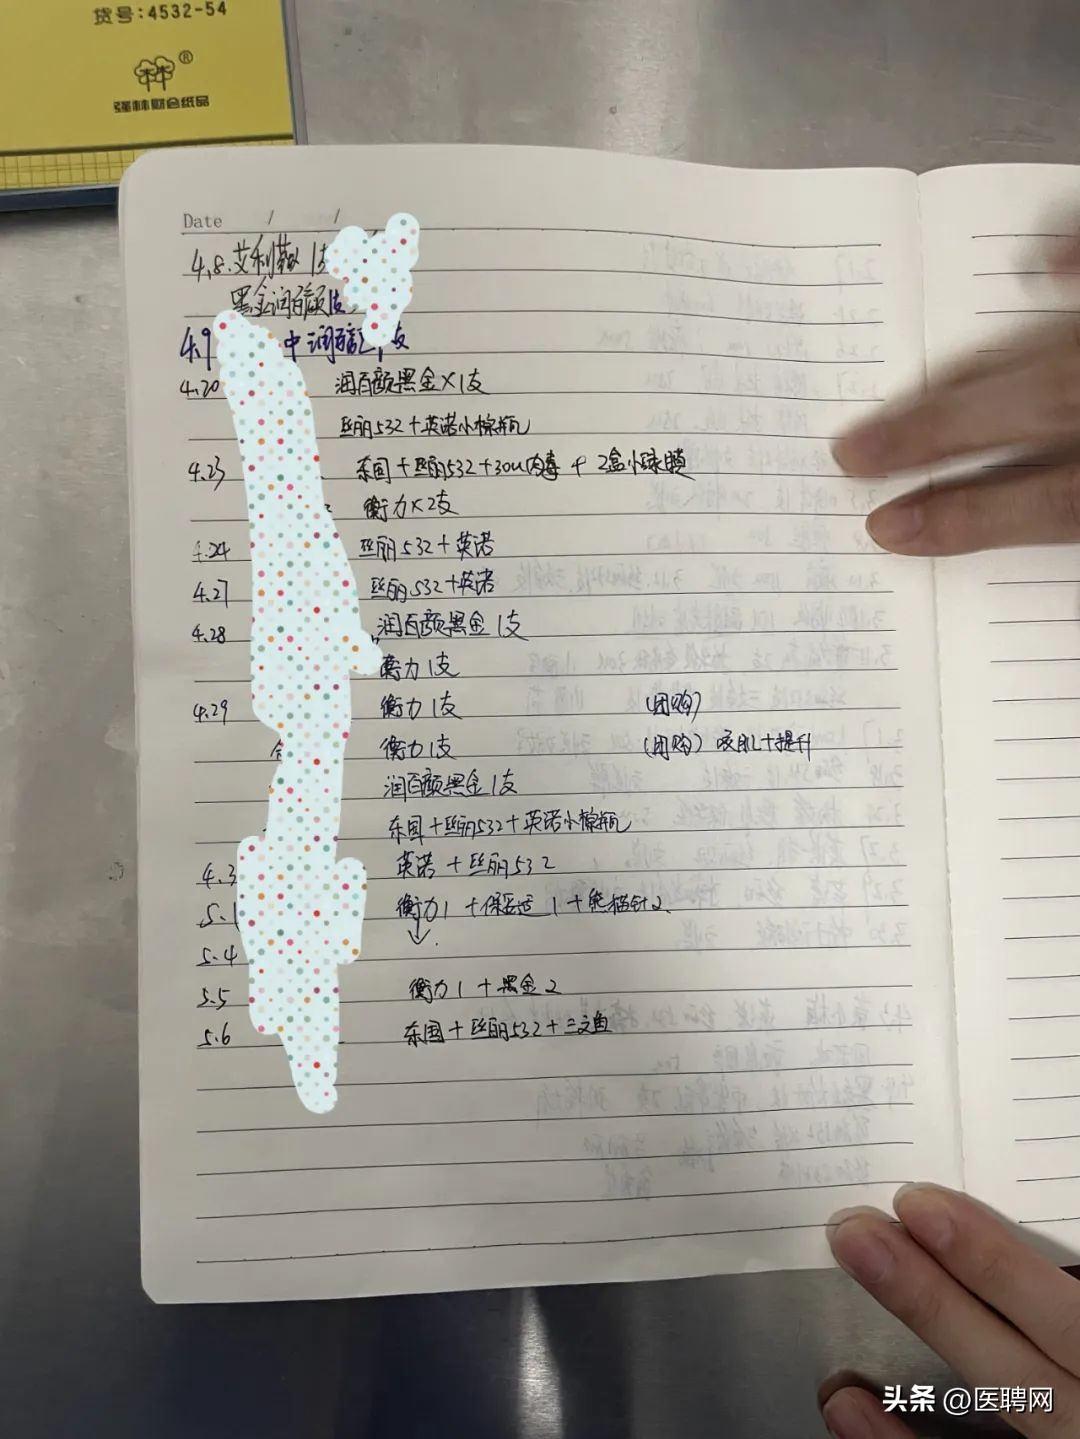 货号:4532-54
强林财会纸品
Date / /
4.8. 艾利薇 1支
黑金润百颜1支
4.9 中润百颜1支
4.20 润百颜黑金×1支
丝丽532+英诺小棕瓶
4.23 东国+丝丽532+30u肉毒+2盒小绿膜
衡力×2支
4.24 丝丽532+英诺
4.27 丝丽532+英诺
4.28 润百颜黑金1支
衡力1支
4.29 衡力1支 (团购)
衡力1支 (团购) 咬肌+提升
润百颜黑金1支
东国+丝丽532+英诺小棕瓶
4.3 英诺+丝丽532
5.1 衡力1+保妥适1+熊猫针2
5.4
5.5 衡力1+黑金2
5.6 东国+丝丽532+三文鱼
头条 @医聘网